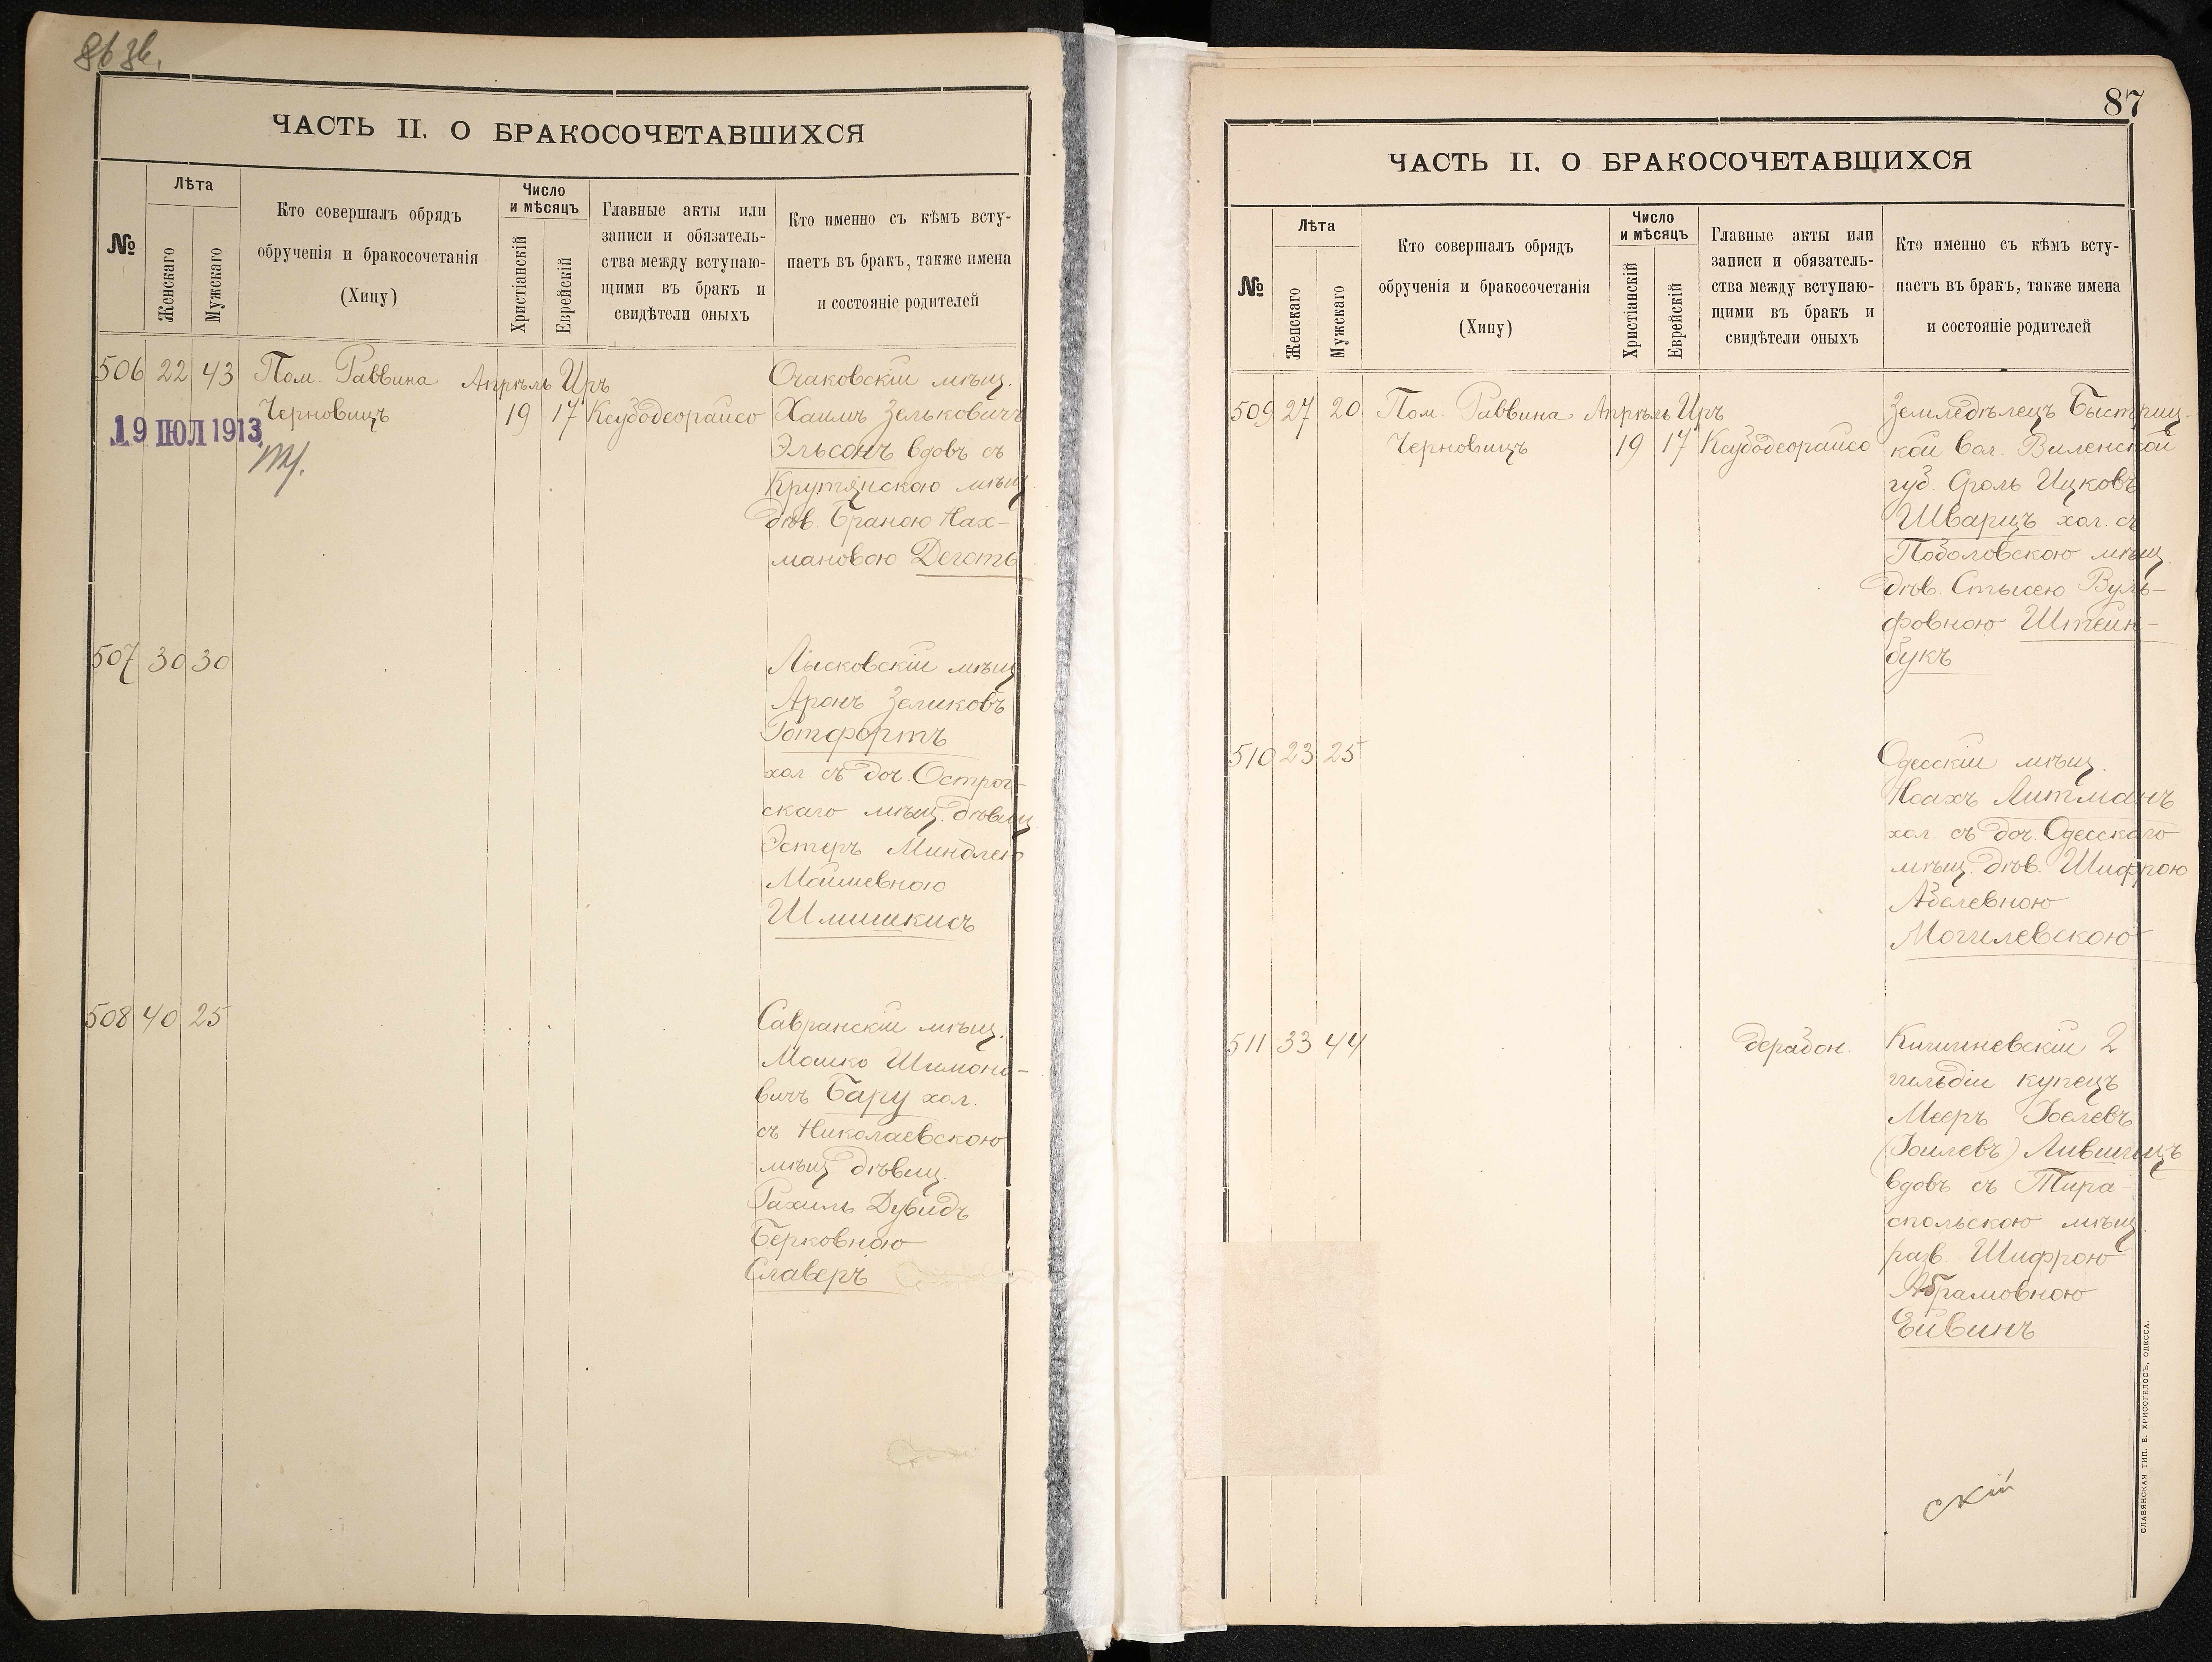 ЧАСТЬ II. О БРАКОСОЧЕТАВШИХСЯ
№
Лѣта
Женскаго
Мужскаго
Кто совершалъ обрядъ
обрученія и бракосочетанія
(Хипу)
Число
и мѣсяцъ
Христіанскій
Еврейскій
Главные акты или
записи и обязатель-
ства между вступаю-
щими въ бракъ и
свидѣтели оныхъ
Кто именно съ кѣмъ всту-
паетъ въ бракъ, также имена
и состояніе родителей
506 22 43 Пом. Раввина Апрѣль Иръ
Черновицъ 19 17
19 ІЮЛ 1913
Очаковскій мѣщ.
Хаимъ Зельковичъ
Эльсонъ вдовъ съ
Крутянскою мѣщ.
дѣв. Браною Нах-
мановою Деготь
507 30 30
Лысковскій мѣщ
Аронъ Зеликовъ
Готфортъ
хол съ доч. Острог-
скаго мѣщ. дѣвиц
Эстеръ Миндлею
Мошевною
Шлишкисъ
508 40 25
Савранскій мѣщ.
Мошко Шимоно-
вичъ Бару хол.
съ Николаевскою
мѣщ. дѣвиц.
Рахиль Дувидъ
Берковною
Славеръ
87
ЧАСТЬ II. О БРАКОСОЧЕТАВШИХСЯ
№
Лѣта
Женскаго
Мужскаго
Кто совершалъ обрядъ
обрученія и бракосочетанія
(Хипу)
Число
и мѣсяцъ
Христіанскій
Еврейскій
Главные акты или
записи и обязатель-
ства между вступаю-
щими въ бракъ и
свидѣтели оныхъ
Кто именно съ кѣмъ всту-
паетъ въ бракъ, также имена
и состояніе родителей
509 27 20 Пом. Раввина Апрѣль Иръ
Черновицъ 19 17
Земледѣлецъ Быстриц-
кой вол. Виленской
губ. Сроль Ицковъ
Шварцъ хол. съ
Подоловскою мѣщ.
дѣв. Стысею Вуль-
фовною Штейн-
букъ
510 23 25
Одесскій мѣщ.
Ноахъ Литманъ
хол. съ доч. Одесскаго
мѣщ. дѣв. Шифрою
Абелевною
Могилевскою
511 33 44
Кишиневскій 2
гильдіи купецъ
Мееръ
Лившицъ
вдовъ съ Тира-
спольскою мѣщ.
разв. Шифрою
Абрамовною
Ейвинъ
скій
СЛАВЯНСКАЯ ТИП. Е. ХРИСОГЕЛОСЪ, ОДЕССА.